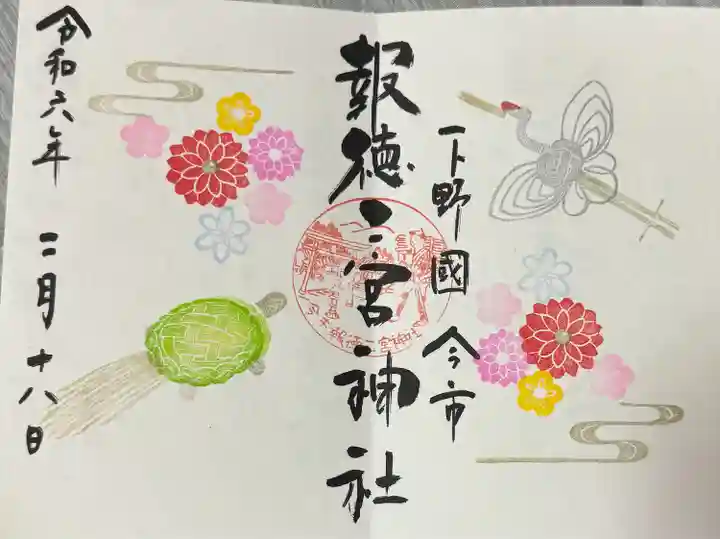 下野國 今市
報徳二宮神社
令和六年 二月十八日
今市報徳二宮神社